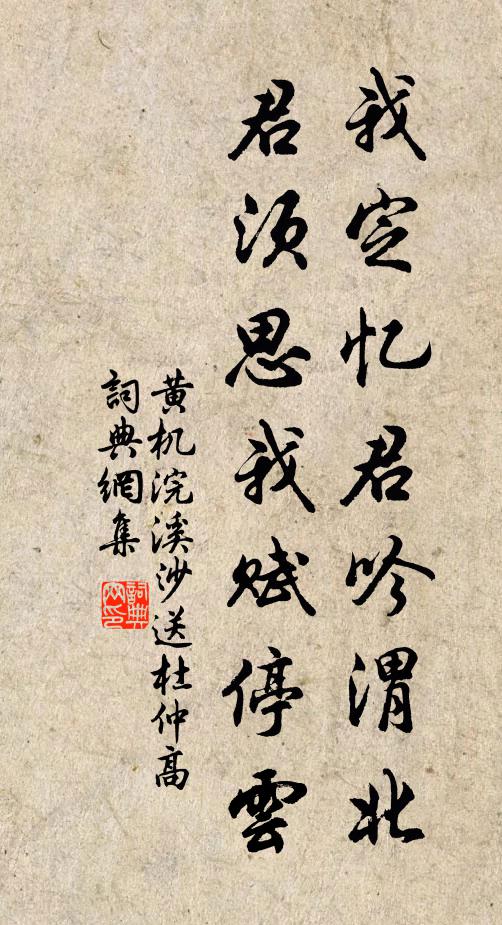 我定忆君吟渭北
君须思我赋停雲
黄机浣溪沙送杜仲高
詞典網集
詞典網印